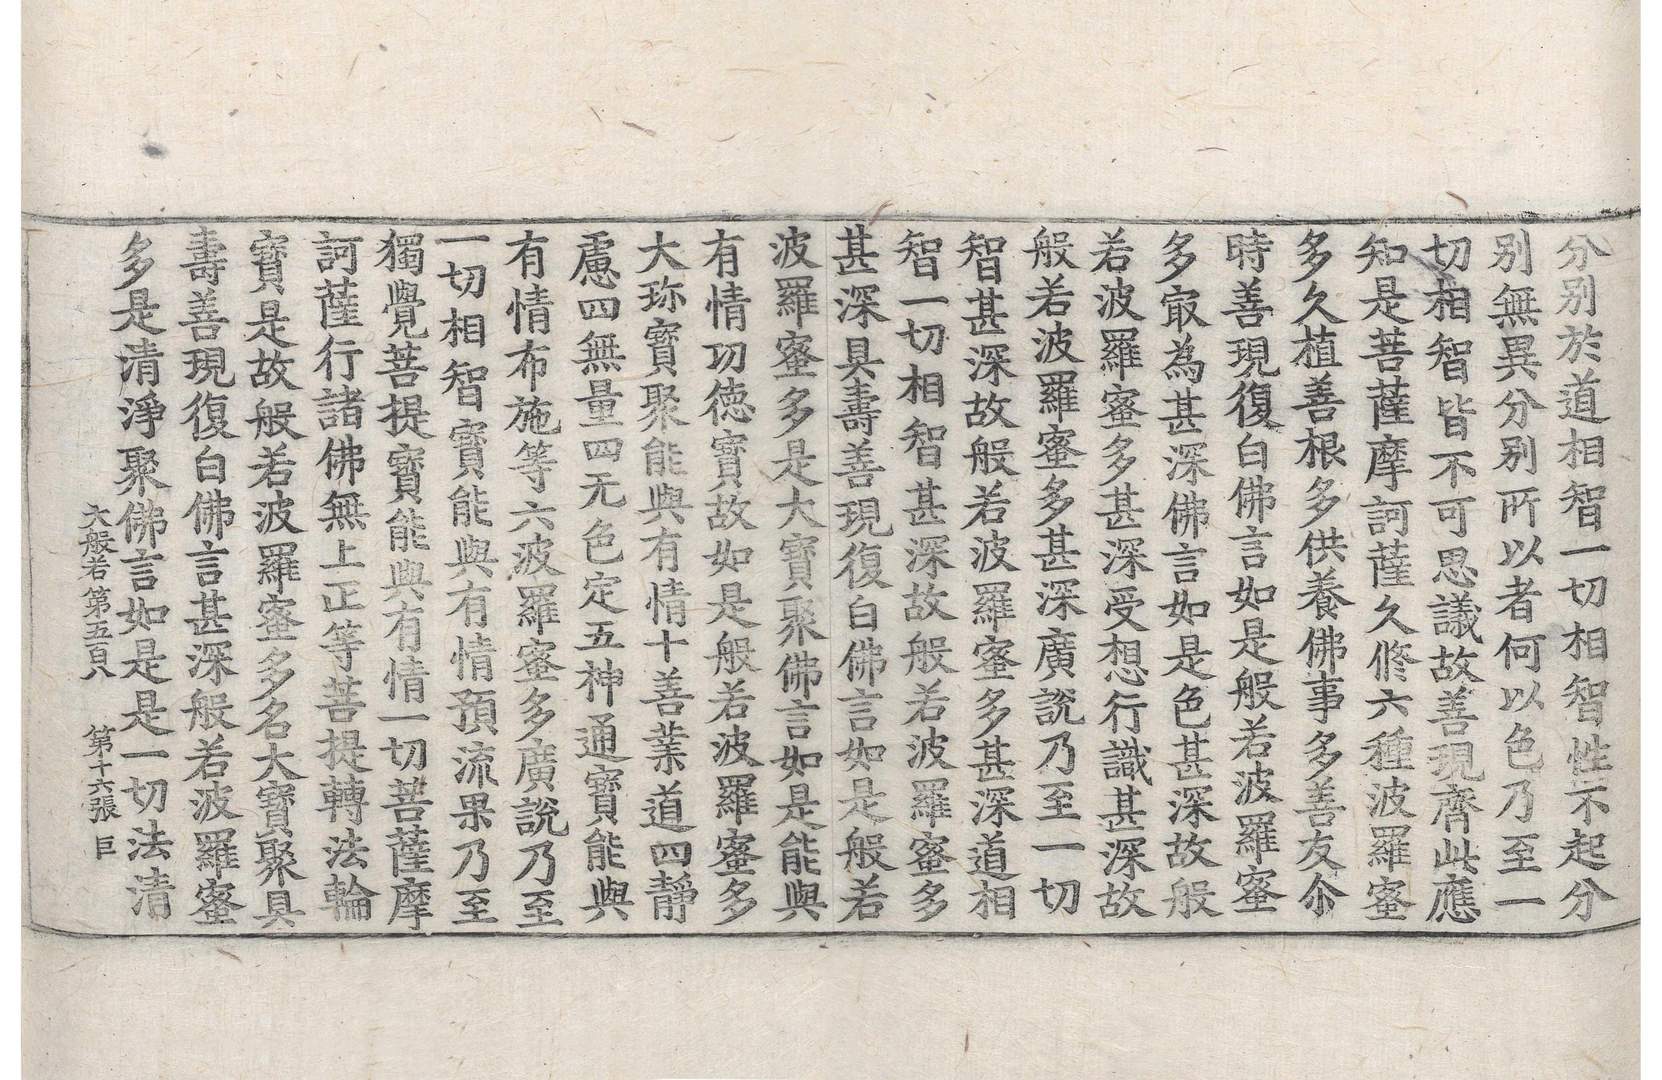 分別於道相智一切相智性不起分
別無異分別所以者何以色乃至一
切相智皆不可思議故善現齊此應
知是菩薩摩訶薩久修六種波羅蜜
多久植善根多供養佛事多善友尒
時善現復白佛言如是般若波羅蜜
多㝡為甚深佛言如是色甚深故般
若波羅蜜多甚深受想行識甚深故
般若波羅蜜多甚深廣說乃至一切
智甚深故般若波羅蜜多甚深道相
智一切相智甚深故般若波羅蜜多
甚深具壽善現復白佛言如是般若
波羅蜜多是大寶聚佛言如是能與
有情功德寶故如是般若波羅蜜多
大珎寶聚能與有情十善業道四靜
慮四無量四无色定五神通寶能與
有情布施等六波羅蜜多廣說乃至
一切相智寶能與有情預流果乃至
獨覺菩提寶能與有情一切菩薩摩
訶薩行諸佛無上正等菩提轉法輪
寶是故般若波羅蜜多名大寶聚具
壽善現復白佛言甚深般若波羅蜜
多是清淨聚佛言如是是一切法清
大般若第五百八 第十六張 巨